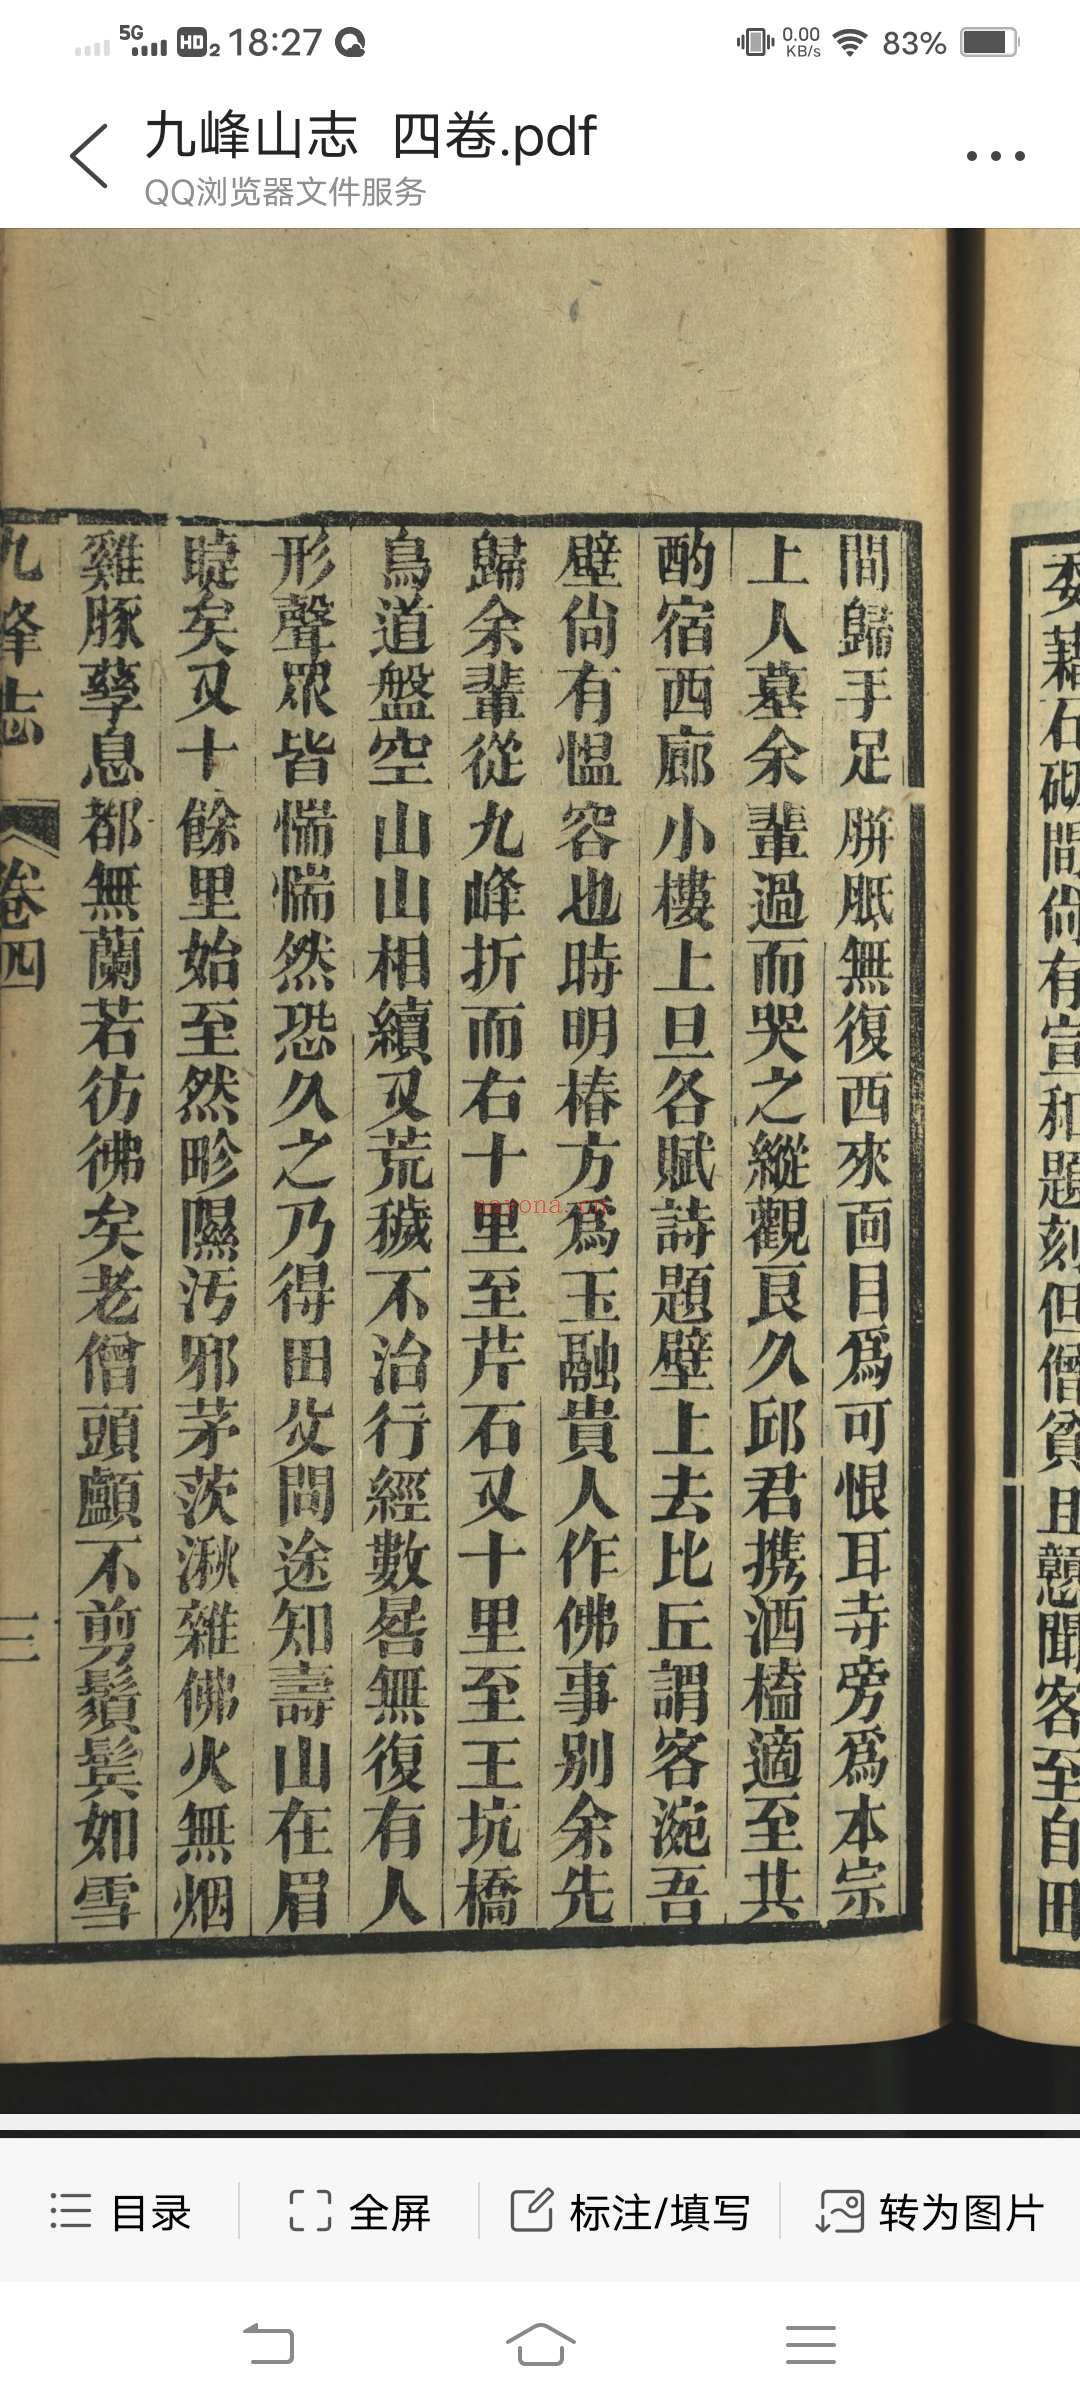 5G HD 2 18:27 0.00 KB/s 83%
九峰山志 四卷.pdf
QQ浏览器文件服务
委藉石砌間尙有宣和題刻但僧貧且戇聞客至自田
間歸手足胼胝無復西來面目爲可恨耳寺旁爲本宗
上人墓余輩過而哭之縱觀良久邱君携酒榼適至共
酌宿西廊小樓上旦各賦詩題壁上去比丘謂客涴吾
壁尙有慍容也時明椿方爲玉融貴人作佛事別余先
歸余輩從九峰折而右十里至芹石又十里至王坑橋
鳥道盤空山山相續又荒穢不治行經數晷無復有人
形聲眾皆惴惴然恐久之乃得田父問途知壽山在眉
睫矣又十餘里始至然畛隰汚邪茅茨湫雜佛火無烟
雞豚孳息都無蘭若彷彿矣老僧頭顱不剪鬚鬓如雪
九峰志 卷四 三
sayona.cn
目录 全屏 标注/填写 转为图片